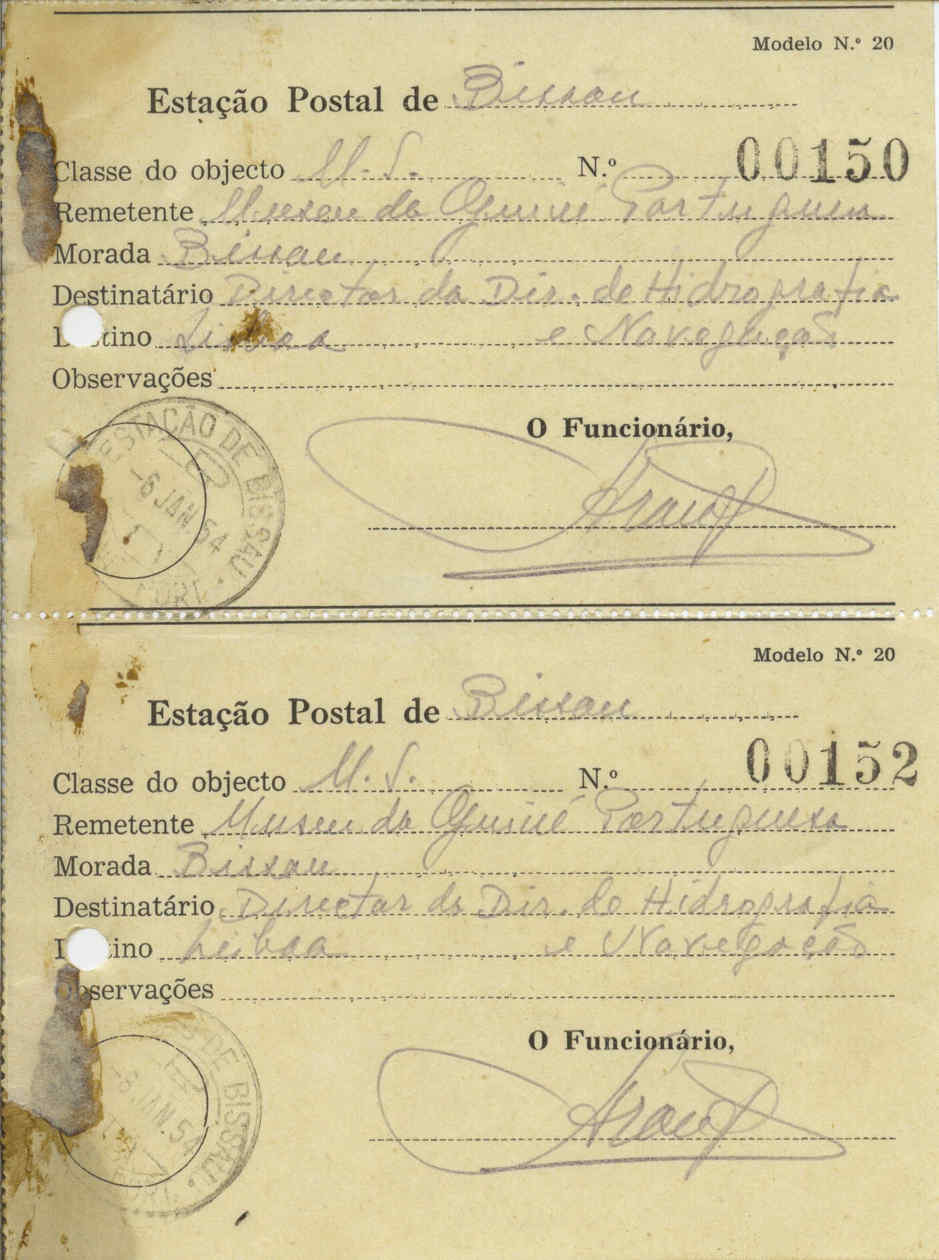 Modelo N.º 20
Estação Postal de Bissau
Classe do objecto M. S. N.º 00150
Remetente Museu da Guiné Portuguesa
Morada Bissau
Destinatário Director da Dir. de Hidrografia
tino Lisboa e Navegação
Observações
O Funcionário,
ESTAÇÃO DE BISSAU
-6 JAN 54
PORT.
Modelo N.º 20
Estação Postal de Bissau
Classe do objecto M. S. N.º 00152
Remetente Museu da Guiné Portuguesa
Morada Bissau
Destinatário Director da Dir. de Hidrografia
ino Lisboa e Navegação
Observações
O Funcionário,
DE BISSAU
-6 JAN 54